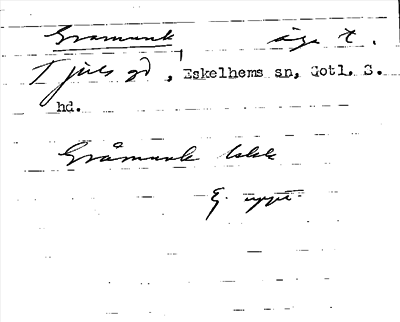 Gramunk äga t.
Tjuls gd, Eskelhems sn, Gotl. S.
hd.
Gråmunk
E. uppt.